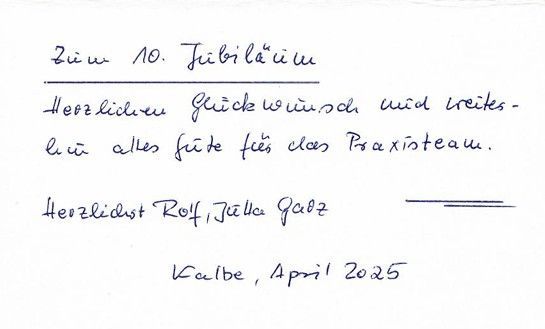 Zum 10. Jubiläum
Herzlichen Glückwunsch und weiter-
hin alles Gute für das Praxisteam.
Herzlichst Rolf, Jutta
Kalbe, April 2025